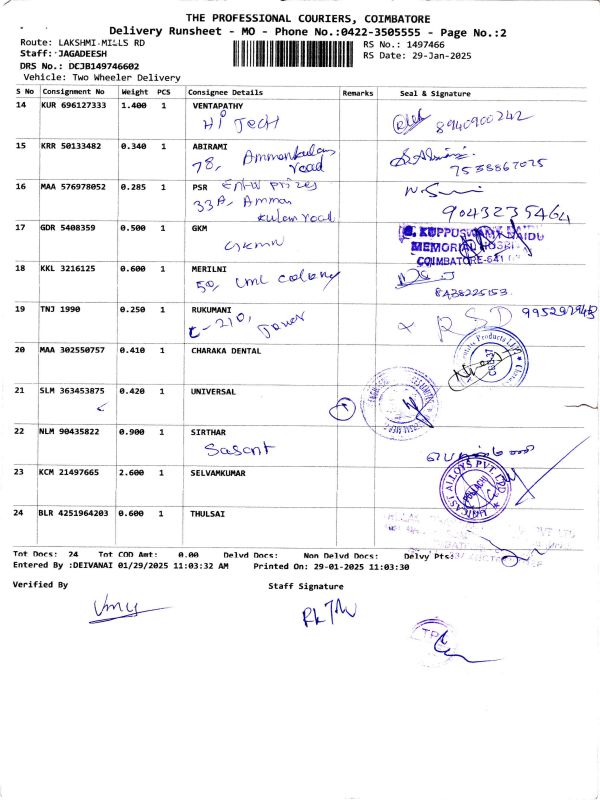 THE PROFESSIONAL COURIERS, COIMBATORE
Delivery Runsheet - MO - Phone No.:0422-3505555 - Page No.:2
Route: LAKSHMI MILLS RD
RS No.: 1497466
Staff: JAGADEESH
RS Date: 29-Jan-2025
DRS No.: DCJB149746602
Vehicle: Two Wheeler Delivery
S No Consignment No Weight PCS Consignee Details Remarks Seal & Signature
14 KUR 696127333 1.400 1 VENTAPATHY
Hi Tech
8940900242
15 KRR 50133482 0.340 1 ABIRAMI
78, Ammankulam road
7538867025
16 MAA 576978052 0.285 1 PSR Enter prizes
33A, Amman kulam road
9043235464
17 GDR 5408359 0.500 1 GKM
GKMN
G. KUPPUSWAMY NAIDU
MEMORIAL HOSPI
COIMBATORE-641
18 KKL 3216125 0.600 1 MERILNI
50, LML colony
8438225153
19 TNJ 1990 0.250 1 RUKUMANI
C-210, Tower
RSD
20 MAA 302550757 0.410 1 CHARAKA DENTAL
21 SLM 363453875 0.420 1 UNIVERSAL
22 NLM 90435822 0.900 1 SIRTHAR
Sasant
23 KCM 21497665 2.600 1 SELVAMKUMAR
24 BLR 4251964203 0.600 1 THULSAI
Tot Docs: 24 Tot COD Amt: 0.00 Delvd Docs: Non Delvd Docs: Delvy Pts:
Entered By :DEIVANAI 01/29/2025 11:03:32 AM Printed On: 29-01-2025 11:03:30
Verified By
Staff Signature
TPC